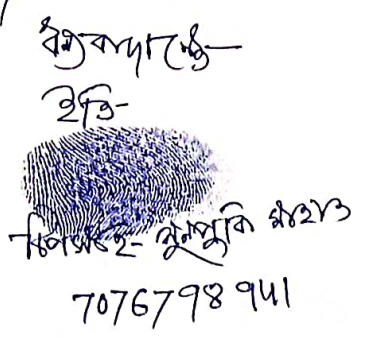 ধন্যবাদান্তে—
ইতি-
টিপসই- ফুলমুকি মাহাত
7076798941